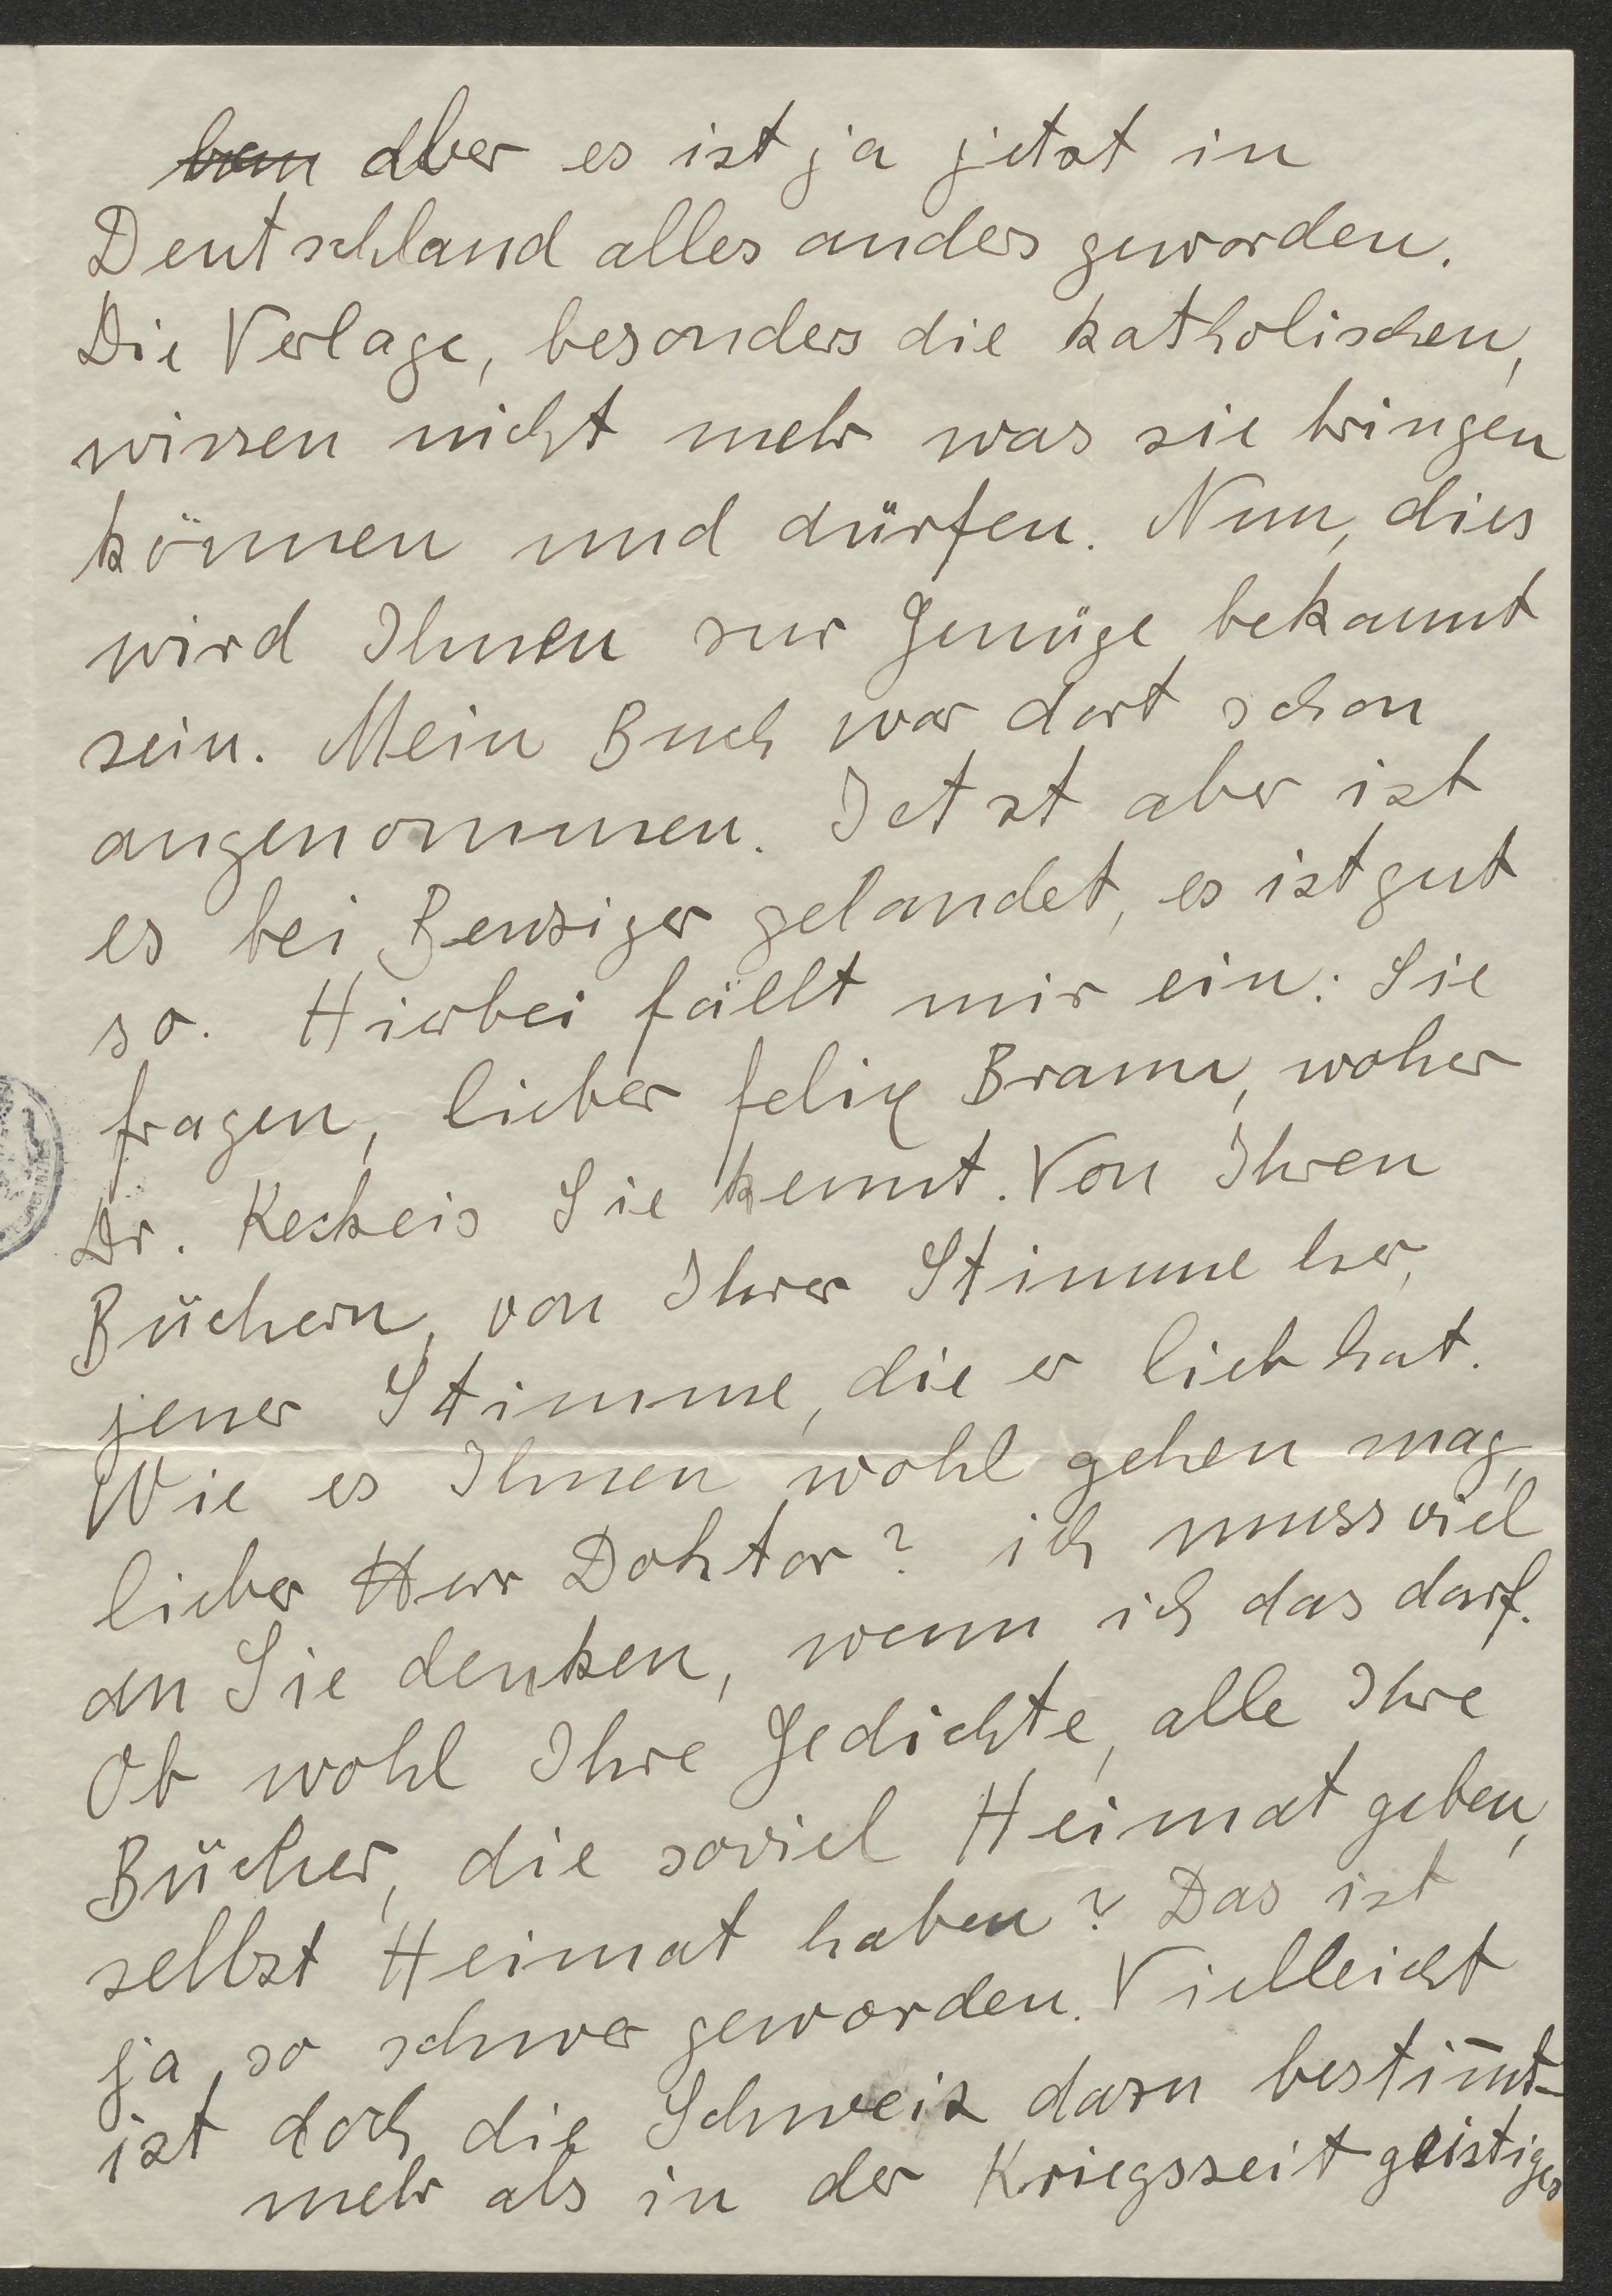 aber es ist ja jetzt in
Deutschland alles anders geworden.
Die Verlage, besonders die katholischen,
wissen nicht mehr was sie bringen
können und dürfen. Nun, dies
wird Ihnen zur Genüge bekannt
sein. Mein Buch war dort schon
angenommen. Jetzt aber ist
es bei Benziger gelandet, es ist gut
so. Hierbei fällt mir ein: Sie
fragen, lieber Felix Braun, woher
Dr. Keckeis Sie kennt. Von Ihren
Büchern, von Ihrer Stimme her,
jener Stimme, die er lieb hat.
Wie es Ihnen wohl gehen mag,
lieber Herr Doktor? ich muss viel
an Sie denken, wenn ich das darf.
Ob wohl Ihre Gedichte, alle Ihre
Bücher, die soviel Heimat geben,
selbst Heimat haben? Das ist
ja so schwer geworden. Vielleicht
ist doch die Schweiz dazu bestim̄t-
mehr als in der Kriegszeit geistiges